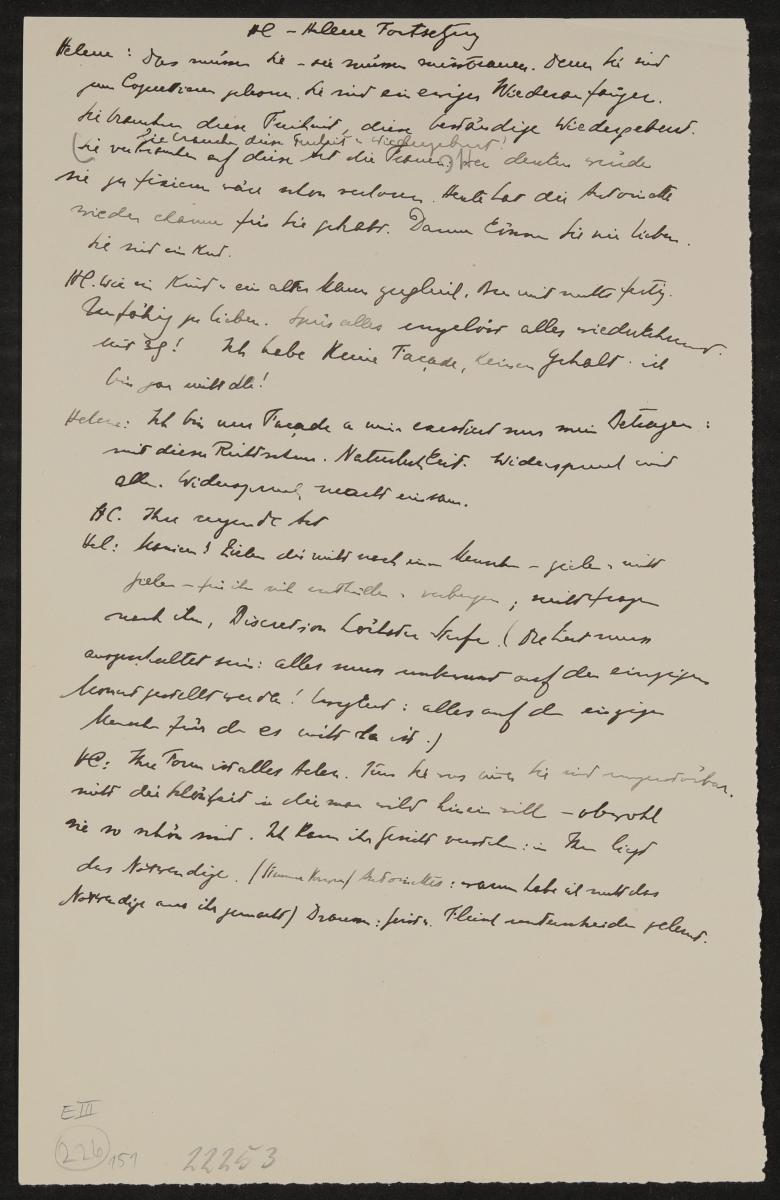 HC – Helene Fortsetzung
Helene: Das müssen Sie – sie müssen misstrauen. Denn Sie sind
zum geboren. Sie sind ein ewiger Wiederanfänger.
Sie brauchen diese Freiheit, diese beständige Wiedergeburt.
Sie brauchen diese Freiheit u Wiedergeburt!
(Sie verbrauchen auf diese Art die Frauen.) Wer denken würde
sie zu fixieren wäre schon verloren. Heute hat die Antoinette
wieder für Sie gehabt. Darum können Sie nie lieben.
Sie sind ein Kind.
HC. Wie ein Kind u ein alter Mann zugleich. Bin mit nichts fertig.
Unfähig zu lieben. alles ungelöst alles wiederkehrend.
mit 39! Ich habe keine Façade, keinen Gehalt. ich
bin gar nicht da!
Helene: Ich bin nur Façade u mir existiert nur mein Betragen:
mit dieser. Natürlichkeit. Widerspruch wird
alles. Widerspruch macht einsam.
HC. Ihre Art
Hel: Manier! Zielen die nicht nach einem Menschen – zielen u nicht
zielen – für ihn sich enthüllen u verbergen; nicht fragen
nach ihm, Discretion höchster Stufe. (Die Zeit muss
ausgeschaltet sein: alles muss auf den einzigen
Moment gestellt werden! : alles auf den einzigen
Menschen für den es nicht da ist.)
HC: Ihre Form ist alles Adel. Sie sind unzerstörbar.
nicht die in die man wild hinein will – obwohl
sie so schön sind. Ich kann ihr Gesicht verstehen: in Ihm liegt
das Notwendige. ( Antoinettes: warum habe ich nicht das
Notwendige aus ihr gemacht) Draussen: Geist u. Fleisch unterscheiden gelernt.
E III
226
151
22253